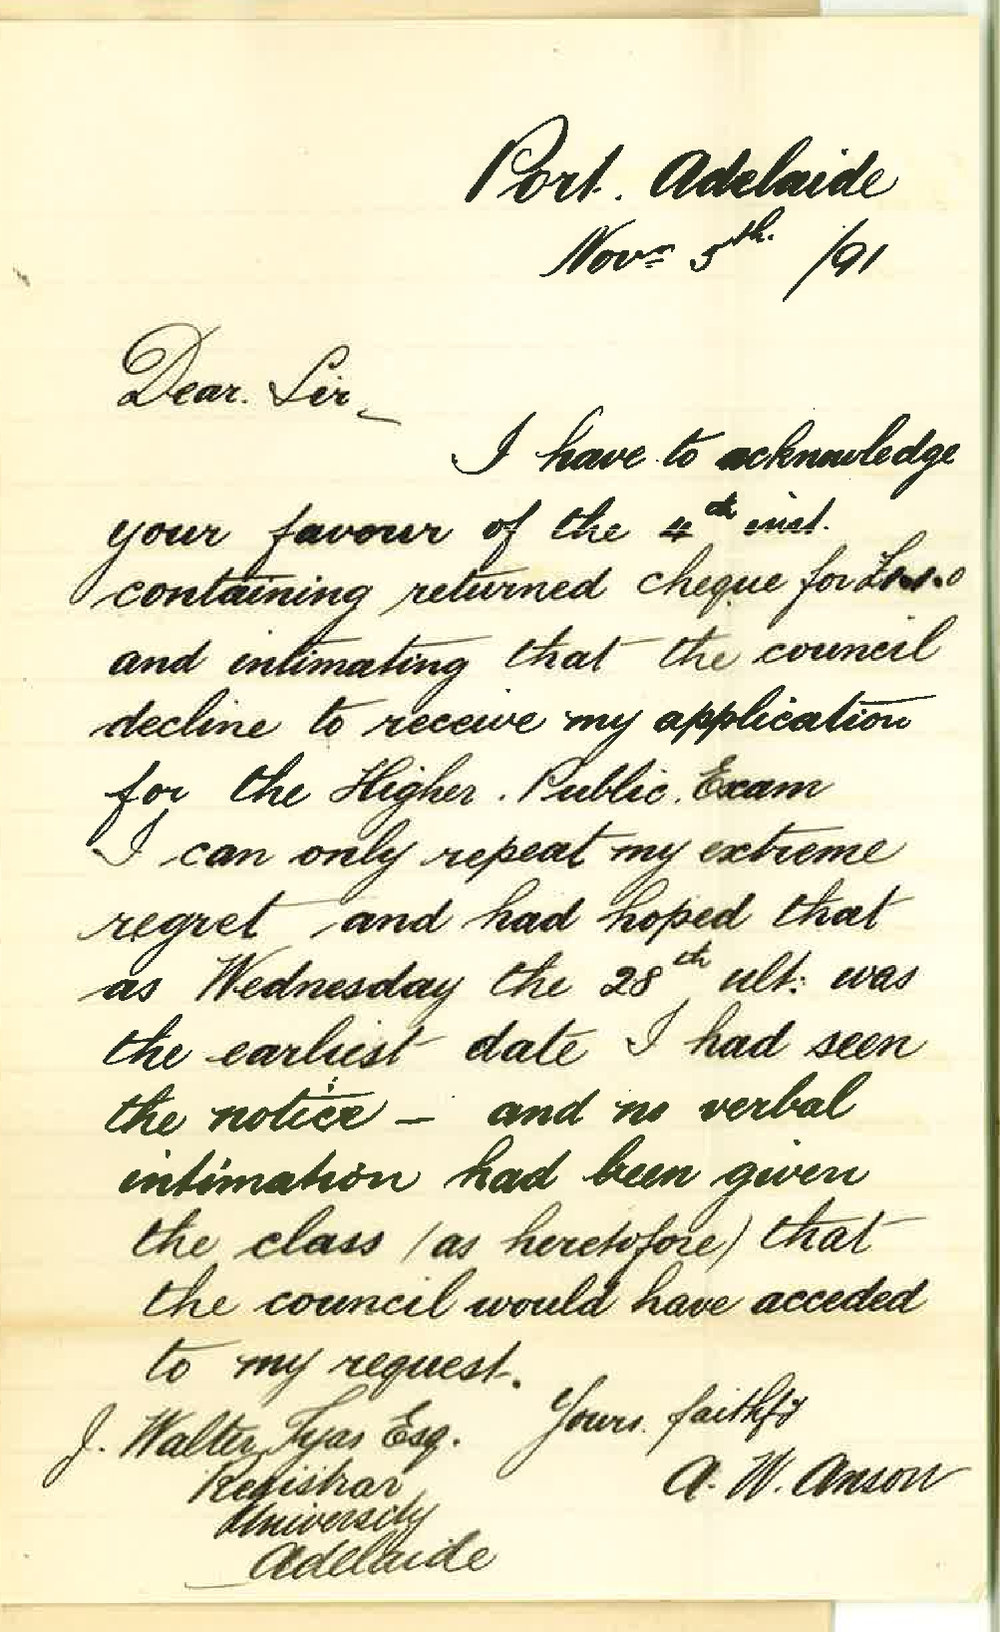 Port. Adelaide
Novr 5th. /91
Dear. Sir_
I have to acknowledge
your favour of the 4th inst.
containing returned cheque for £1.1.0
and intimating that the council
decline to receive my application
for the Higher. Public. Exam
I can only repeat my extreme
regret and had hoped that
as Wednesday the 28th ult: was
the earliest date I had seen
the notice – and no verbal
intimation had been given
the class (as heretofore) that
the council would have acceded
to my request.
Yours. faithfy
A. W. Anson
J. Walter Tyas Esq.
Registrar
University
Adelaide